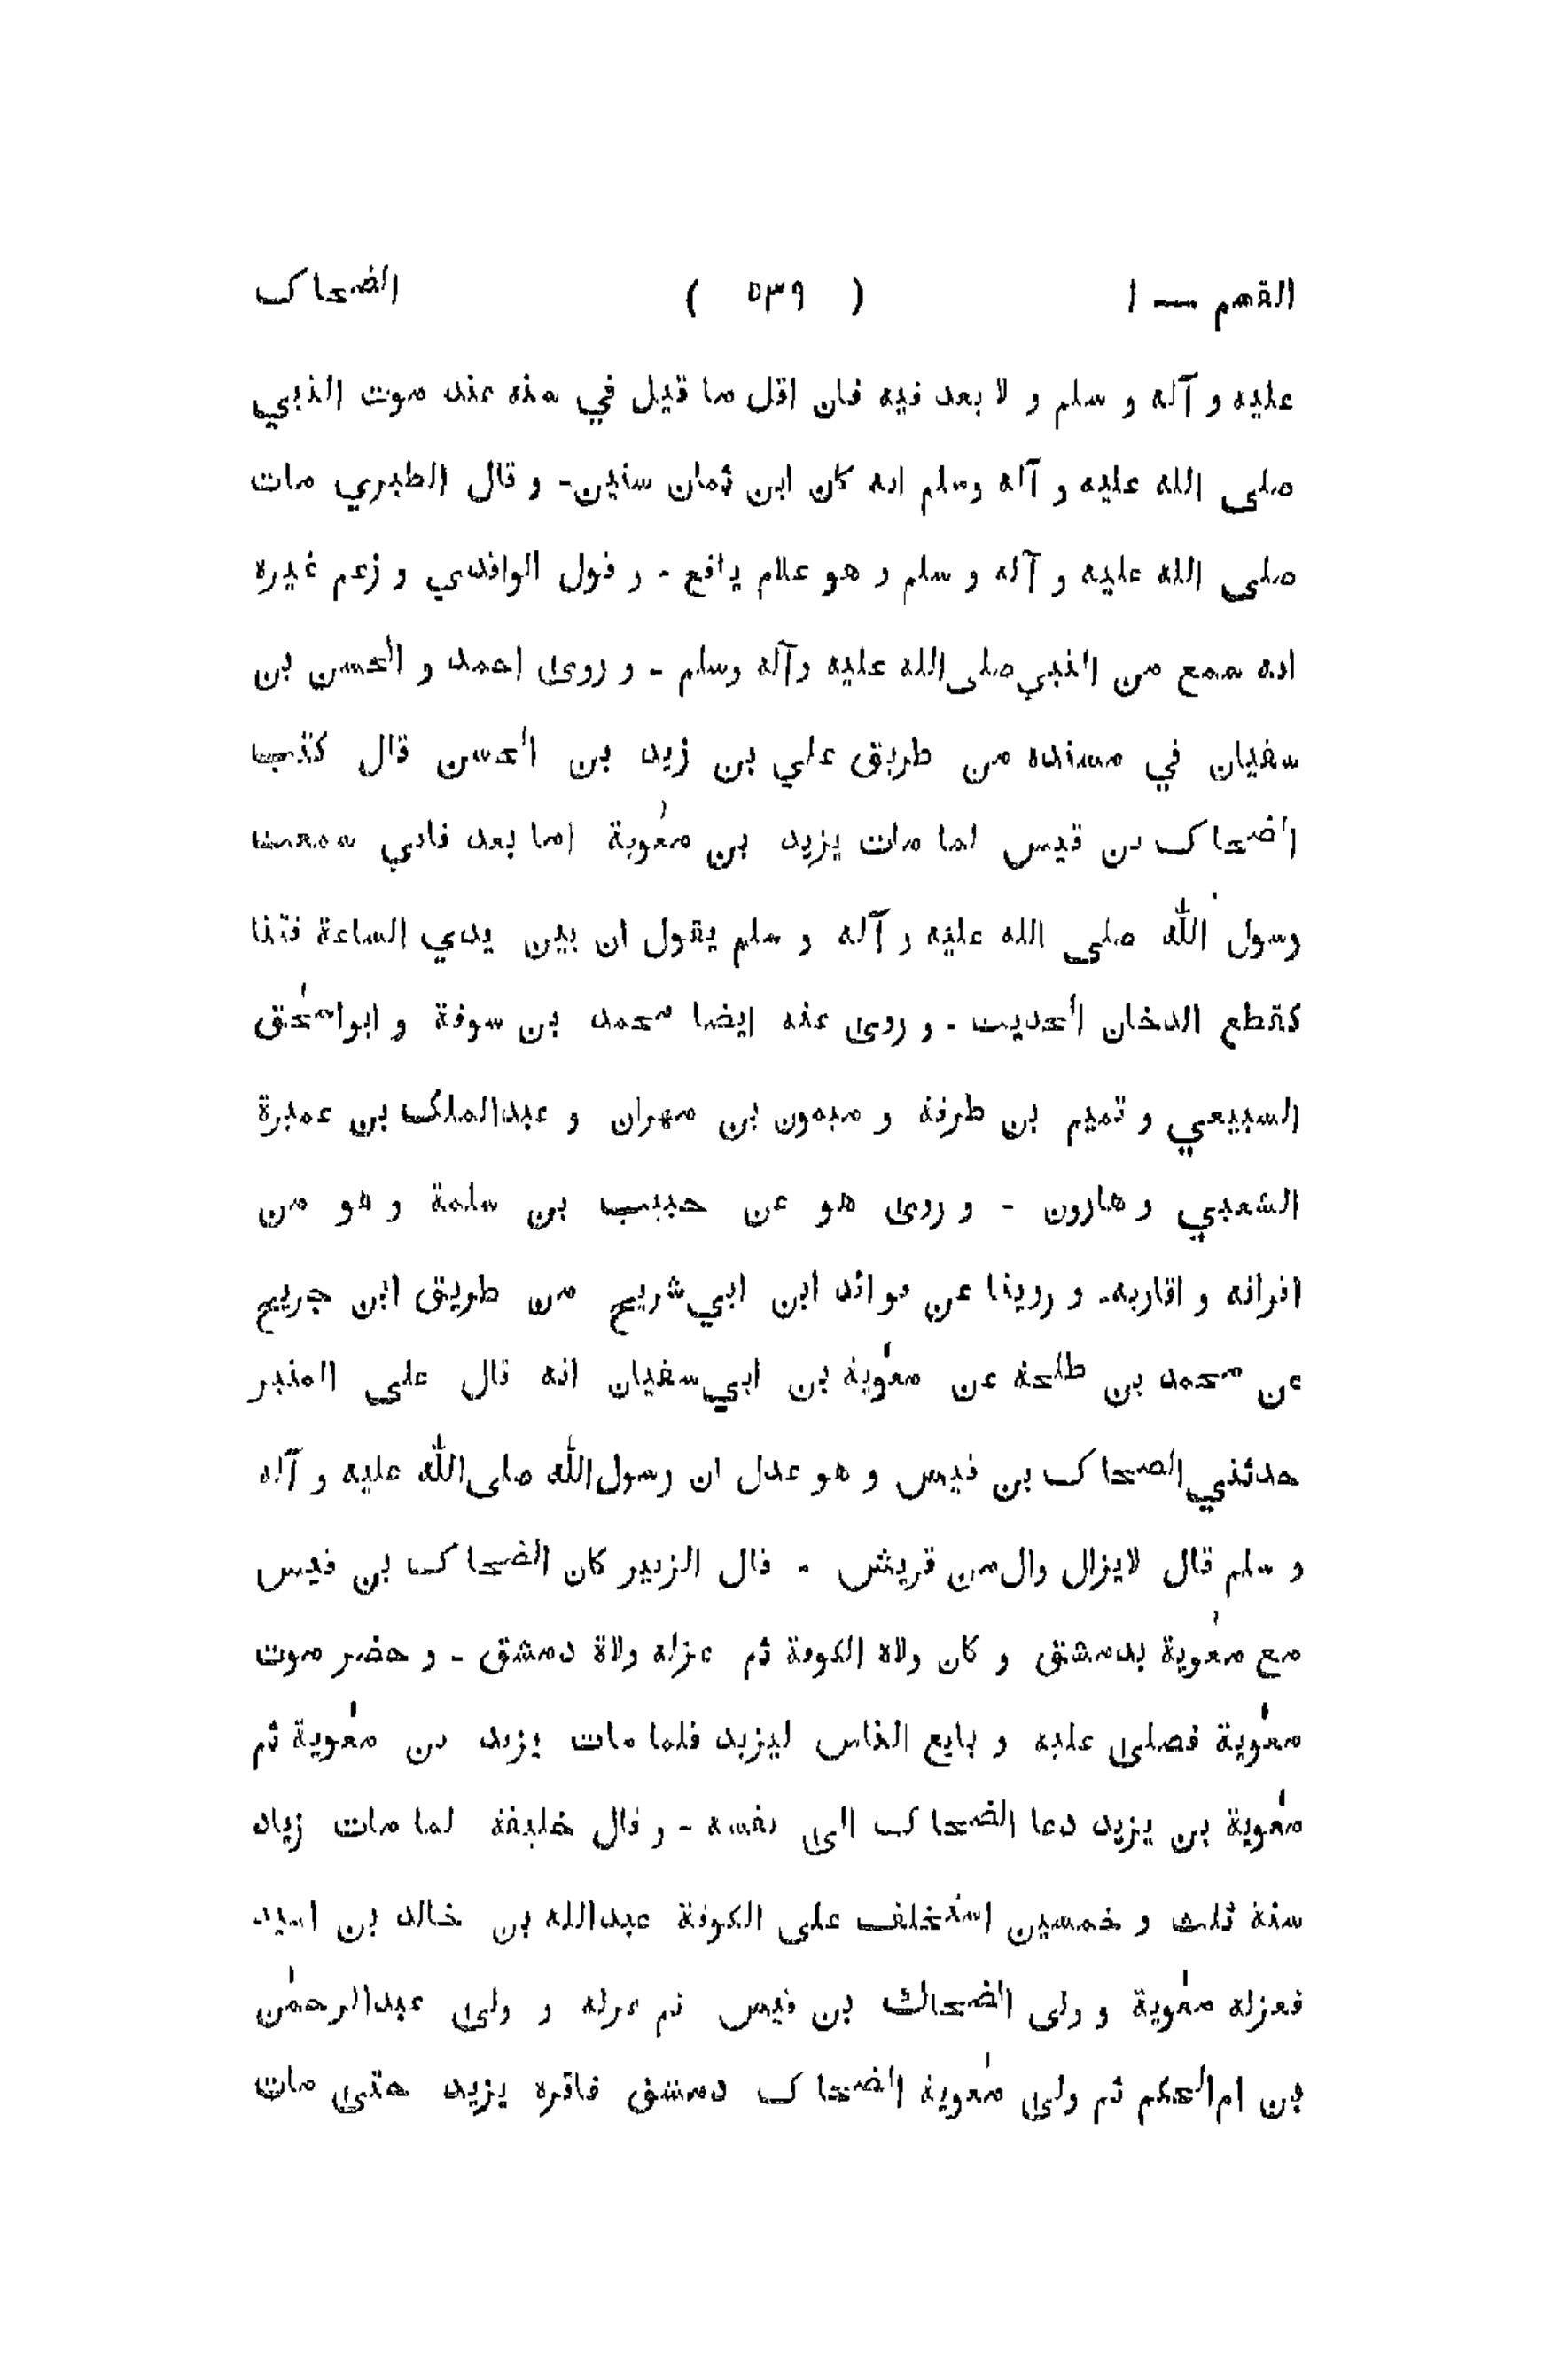 القسم — ١ ( ٥٣٩ ) الضحاک
عليه و آله و سلم و لا بعد فيه فان اقل ما قيل في سنه عند موت النبي
صلى الله عليه و آله وسلم انه كان ابن ثمان سنين - و قال الطبري مات
صلى الله عليه و آله و سلم و هو غلام يافع - و قول الواقدي و زعم غيره
انه سمع من النبي صلى الله عليه وآله وسلم - و روى احمد و الحسن بن
سفيان في مسنده من طريق علي بن زيد بن الحسن قال كتب
الضحاک بن قيس لما مات يزيد بن معٰوية اما بعد فاني سمعت
رسول الله صلى الله عليه و آله و سلم يقول ان بين يدي الساعة فتنا
كقطع الدخان الحديث - و روى عنه ايضا محمد بن سوقة و ابواسحٰق
السبيعي و تميم بن طرفة و ميمون بن مهران و عبدالملک بن عميرة
الشعبي و هارون - و روى هو عن حبيب بن سلمة و هو من
اقرانه و اقاربه - و روينا عن فوائد ابن ابي شريح من طريق ابن جريج
عن محمد بن طلحة عن معٰوية بن ابي سفيان انه قال على المنبر
حدثني الضحاک بن قيس و هو عدل ان رسول الله صلى الله عليه و آله
و سلم قال لايزال وال من قريش - قال الزبير كان الضحاک بن قيس
مع معٰوية بدمشق و كان ولاه الكوفة ثم عزله ولاة دمشق - و حضر موت
معٰوية فصلى عليه و بايع الناس ليزيد فلما مات يزيد بن معٰوية ثم
معٰوية بن يزيد دعا الضحاک الى نفسه - و قال خليفة لما مات زياد
سنة ثلث و خمسين استخلف على الكوفة عبدالله بن خالد بن اسيد
فعزله معٰوية و ولى الضحاك بن قيس ثم عزله و ولى عبدالرحمٰن
بن ام الحكم ثم ولى معٰوية الضحاک دمشق فاقره يزيد حتى مات